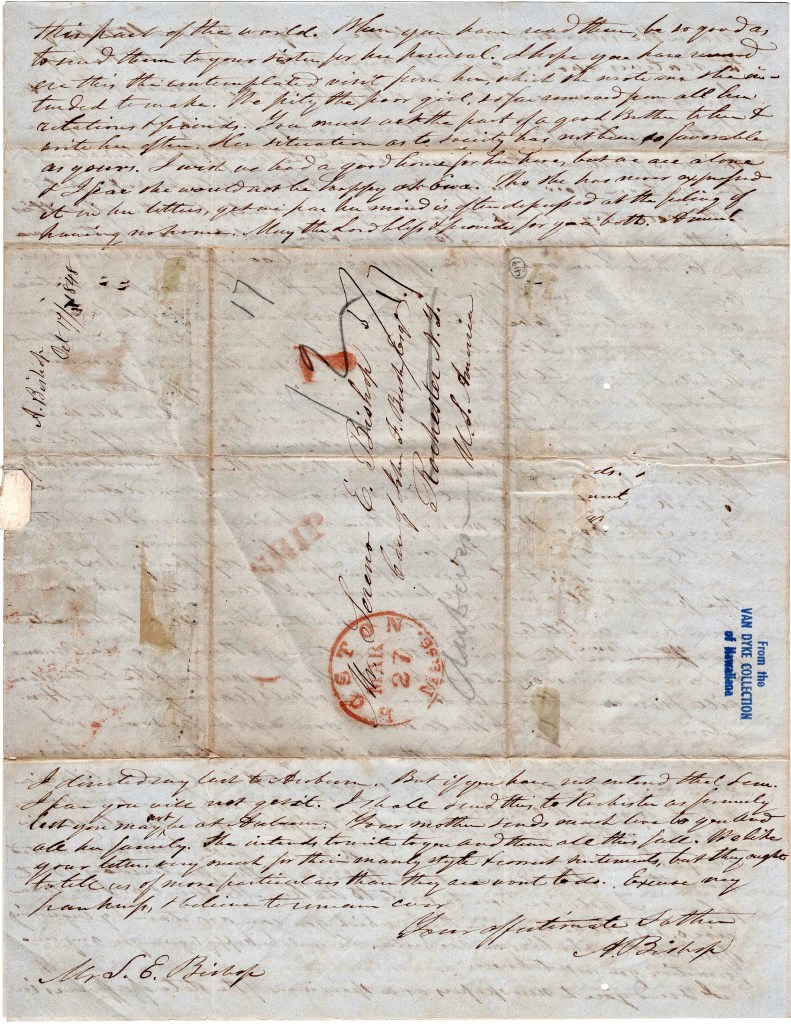 this part of the world. When you have read them, be so good as
to send them to your sister for her perusal. I hope you have received
ere this the contemplated visit from her, which she wrote me she in-
tended to make. We pity the poor girl, so far removed from all her
relations & friends. You must act the part of a good Brother to her &
write her often. Her situation as to society has not been so favorable
as yours. I wish we had a good home for her here, but we are alone
& I fear she would not be happy at Ewa. Tho she has never expressed
it in her letters, yet we fear her mind is often depressed at the feeling of
having no home. May the Lord bless & provide for you both. Amen
A. Bishop
Oct 17/ 1848
17
2
5
17
Mr. Sereno E. Bishop
Care of John F. Bush Esqr
Rochester N.Y.
U.S. America
Auburn
SHIP
BOSTON
MAR
27
MASS.
From the
VAN DYKE COLLECTION
of Hawaiiana
I directed my last to Auburn. But if you have not entered that Sem.
I fear you will not get it. I shall send this to Rochester as formerly
lest you may not be at Auburn. Your mother sends much love to you and
all her family. She intends to write to you and them all this fall. We like
your letters very much for their manly style & correct sentiments, but they ought
to tell us of more particulars than they are wont to do. Excuse my
frankness, & believe to remain ever
Your affectionate Father
A. Bishop
Mr S. E. Bishop